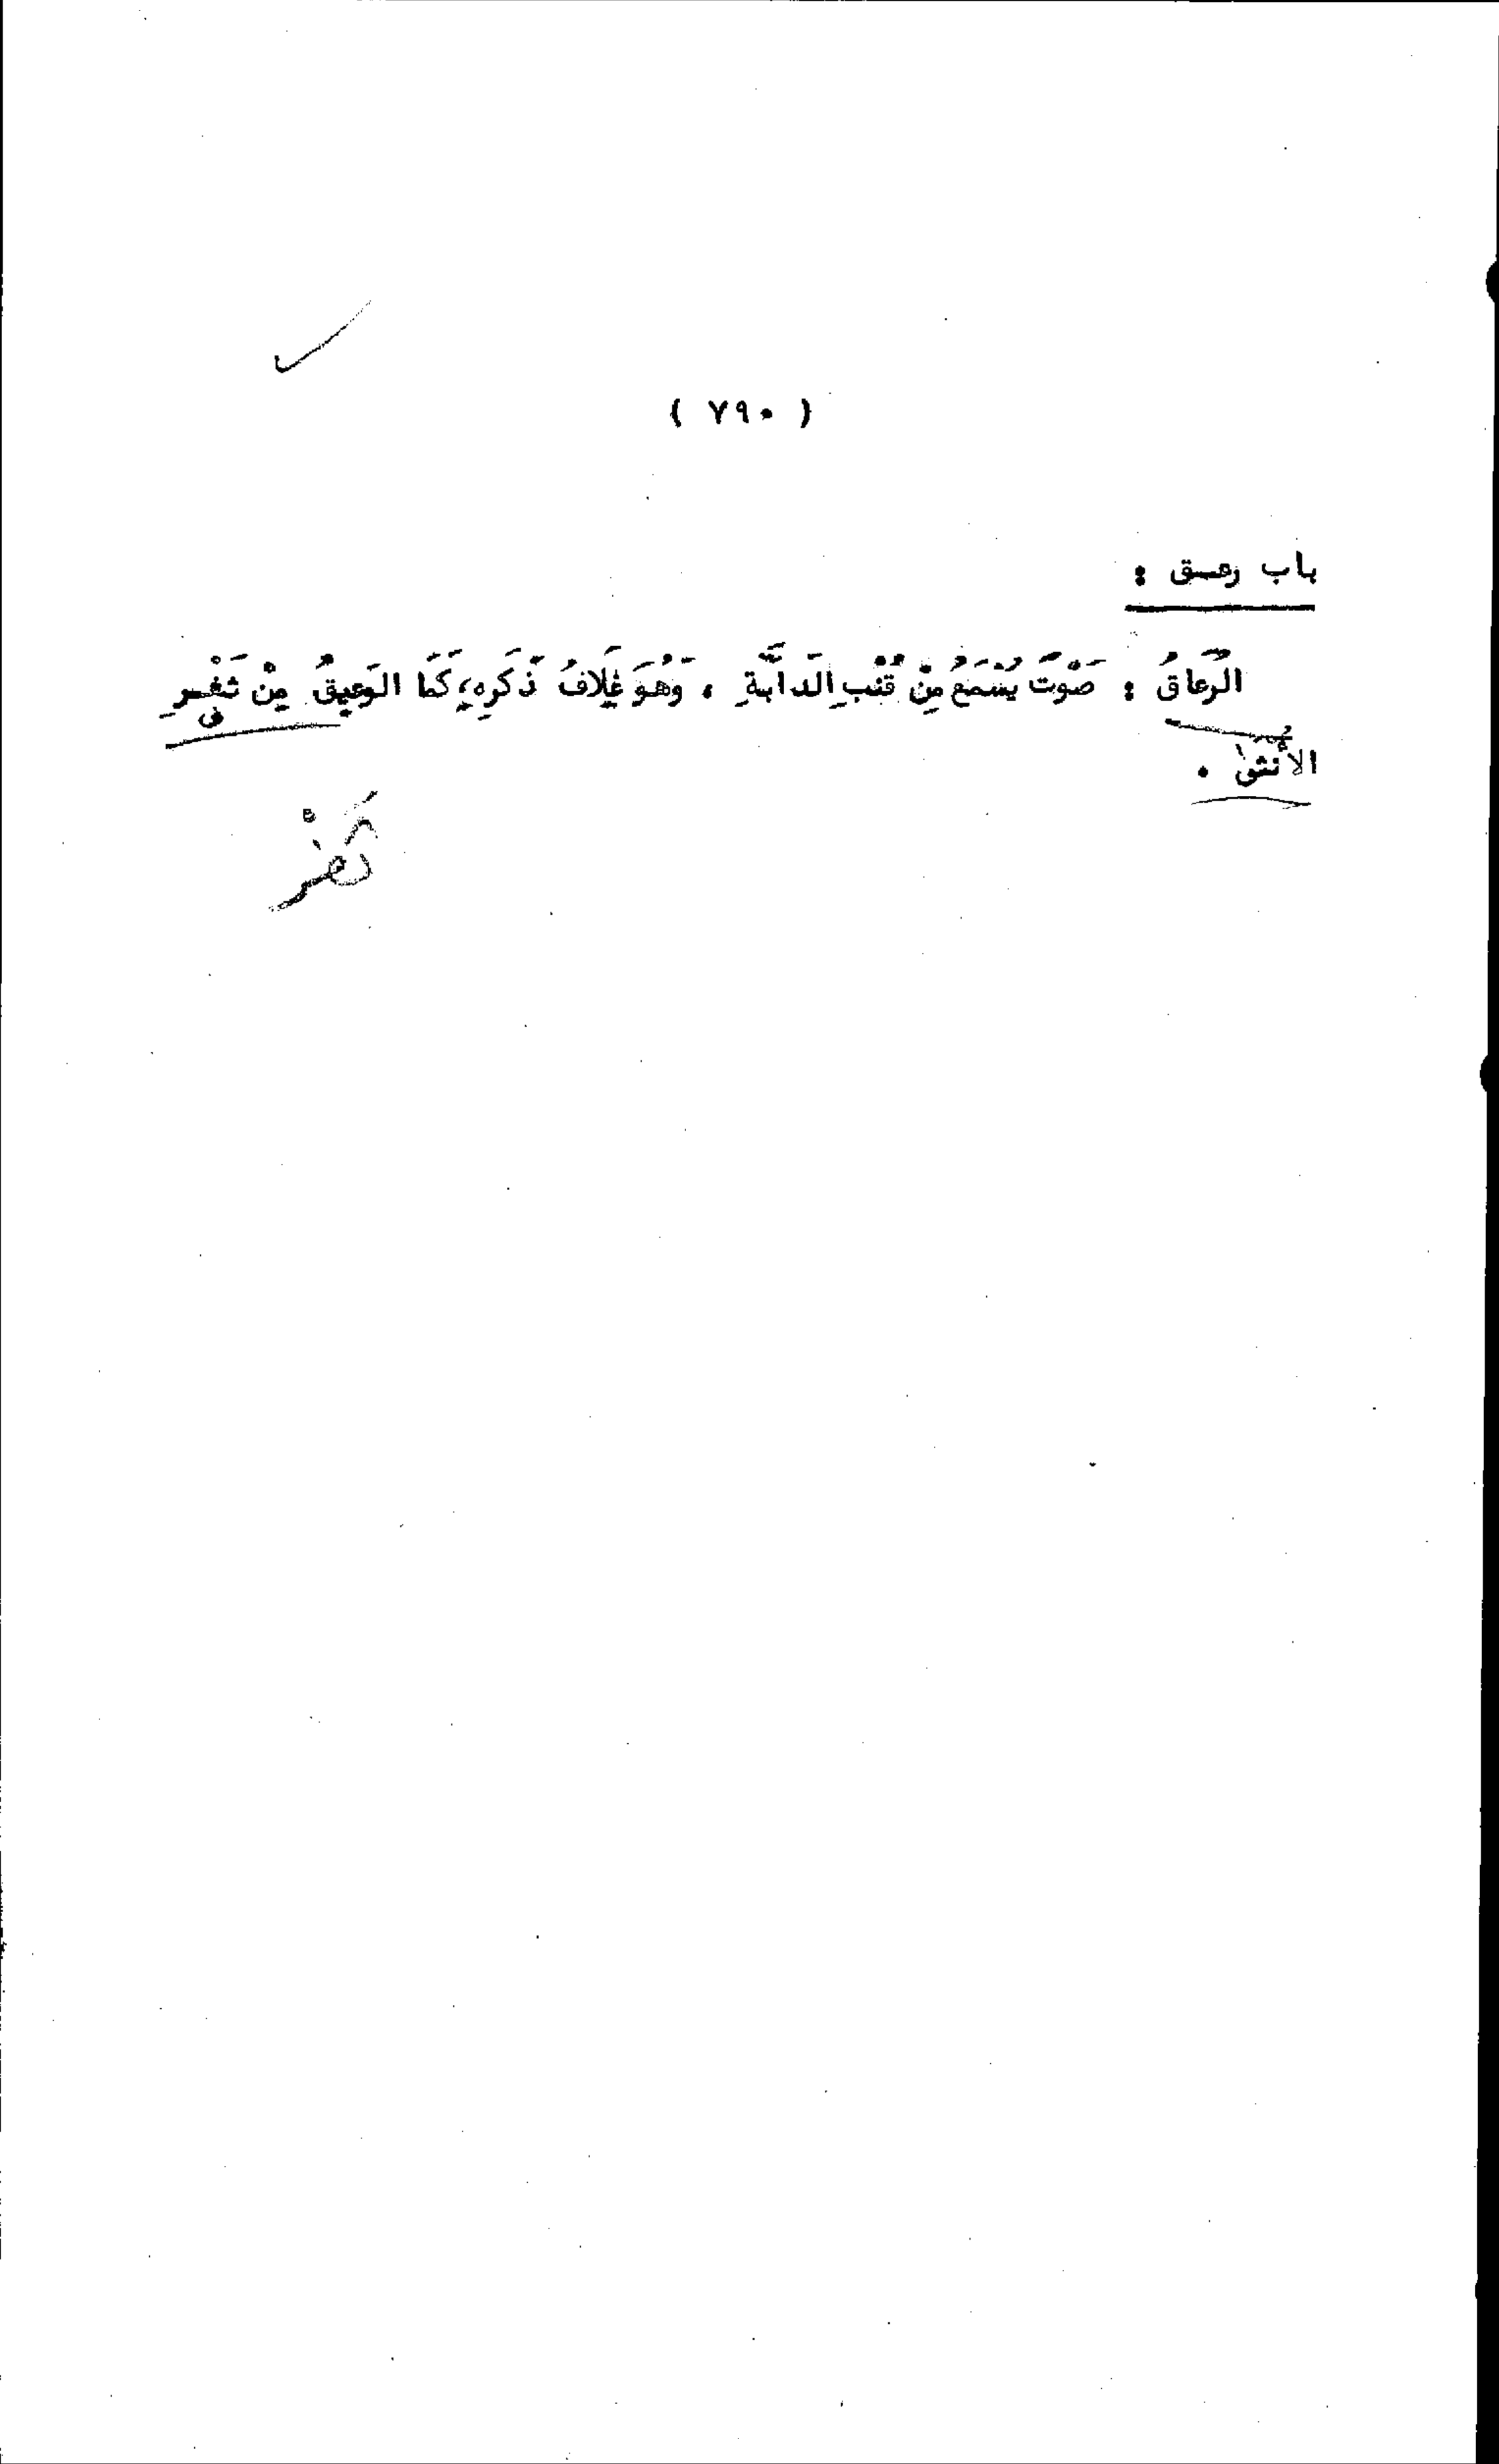 ( ٧٩٠ )
باب رعـق :
الرُّعَاقُ : صَوْتٌ يُسْمَعُ مِنْ قُنْبِ الدَّابَّةِ ، وَهُوَ غِلَافُ ذَكَرِهِ، كَمَا الوَعِيقُ مِنْ ثَغْـرِ
الأُنْثَىٰ .
ثَفْر